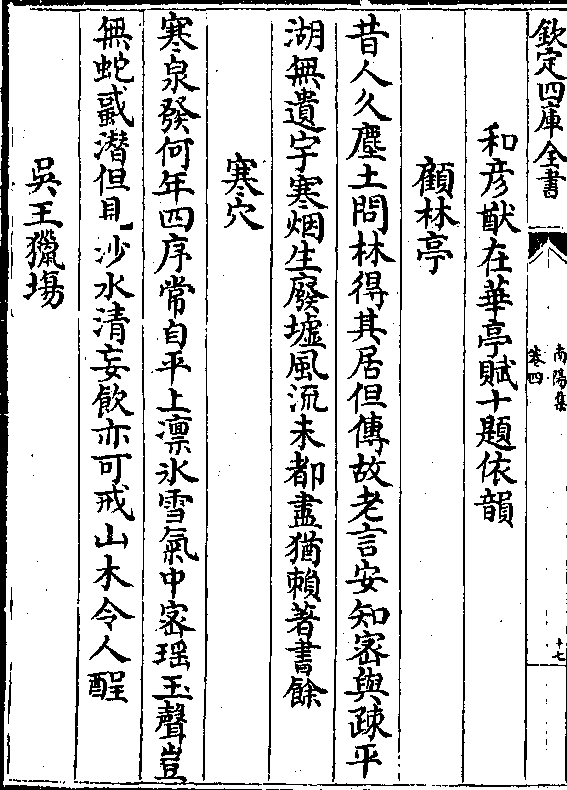 欽定四庫全書
南陽集
卷四
十七
和彦猷在華亭賦十題依韻
顧林亭
昔人久塵土問林得其居但傳故老言安知密與疎平
湖無遺字寒烟生廢墟風流未都盡猶賴著書餘
寒穴
寒泉發何年四序常自平上凛氷雪氣中宻瑶玉聲豈
無蛇蟁潜但見沙水清妄飲亦可戒山木令人酲
吳王獵塲